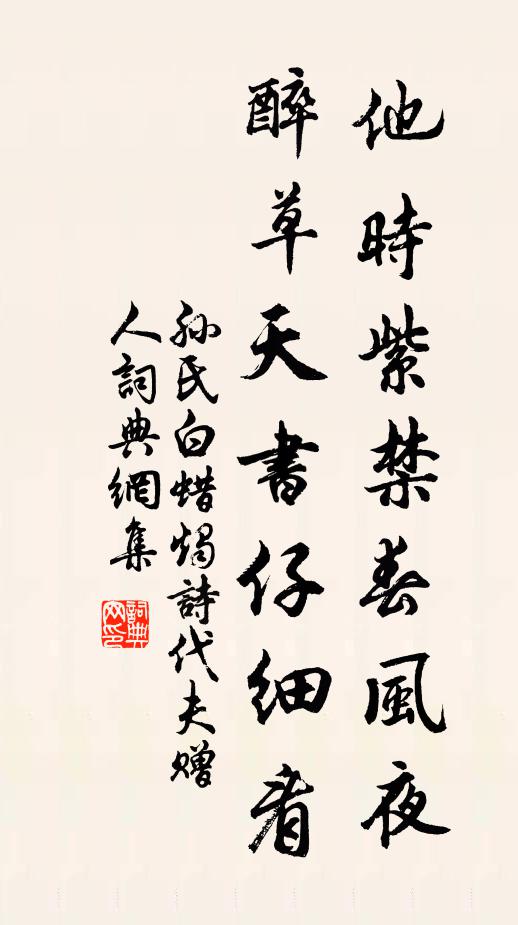 他時紫禁春風夜
醉草天書仔細看
孫氏白蜡燭詩代夫贈
人詞典網集
詞典
网印